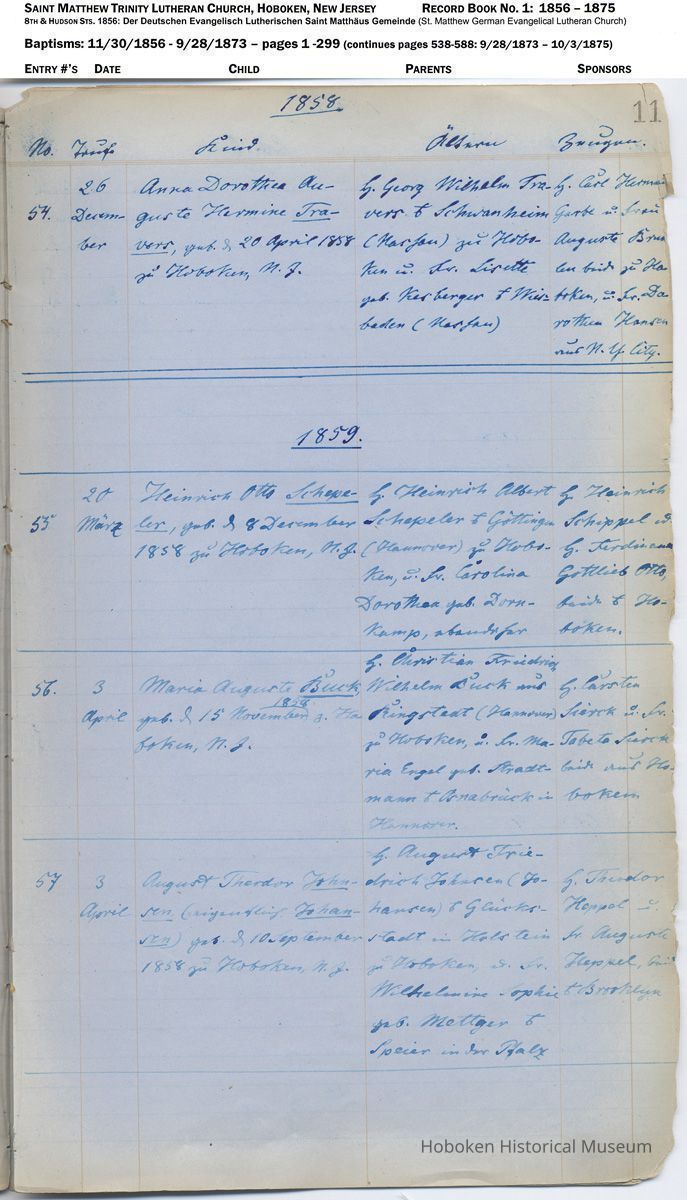 SAINT MATTHEW TRINITY LUTHERAN CHURCH, HOBOKEN, NEW JERSEY RECORD BOOK NO. 1: 1856 – 1875
8TH & HUDSON STS. 1856: Der Deutschen Evangelisch Lutherischen Saint Matthäus Gemeinde (St. Matthew German Evangelical Lutheran Church)
Baptisms: 11/30/1856 - 9/28/1873 – pages 1 -299 (continues pages 538-588: 9/28/1873 – 10/3/1875)
ENTRY #'S DATE CHILD PARENTS SPONSORS
1858.
11
No. Taufe Kind. Ältern Zeugen.
54.
26
Decem-
ber
Anna Dorothea Au-
guste Hermine Tra-
vers, geb. d. 20 April 1858
zu Hoboken, N. J.
H. Georg Wilhelm Tra-
vers Schwanheim
(Nassau) zu Hobo-
ken u. Fr. Lisette
geb. Kesberger Wies-
baden (Nassau)
H. Carl Herman
Garbe u. Frau
Auguste
beide zu Ho-
boken, u. Fr. Do-
rothea Hansen
aus N. Y. City.
1859.
55
20
März
Heinrich Otto Schepe-
ler, geb. d. 8 December
1858 zu Hoboken, N. J.
H. Heinrich Albert
Schepeler Göttingen
(Hannover) zu Hobo-
ken, u. Fr. Carolina
Dorothea geb. Dorn-
kamp, ebendaher
H. Heinrich
Schippel u.
H. Ferdinand
Gottlieb Otto,
beide Ho-
boken.
56.
3
April
Maria Auguste Buck
1858
geb. d. 15 November z. Ho
boken, N. J.
H. Christian Friedrich
Wilhelm Buck aus
Ringstadt (Hannover)
zu Hoboken, u. Fr. Ma-
ria Engel geb. Stradt-
mann Osnabrück in
Hannover.
H. Carsten
Sierck u. Fr.
Tabeta Sierck
beide aus Ho-
boken
57
3
April
August Theodor John-
sen (eigentlich Johan-
sen) geb. d. 10 September
1858 zu Hoboken, N. J.
H. August Frie-
drich Johnsen (Jo-
hansen) Glücks-
stadt in Holstein
zu Hoboken, u. Fr.
Wilhelmine Sophie
geb. Mettger
Speier in der Pfalz
H. Theodor
Heppel u.
Fr. Auguste
Heppel,
Brooklyn
Hoboken Historical Museum